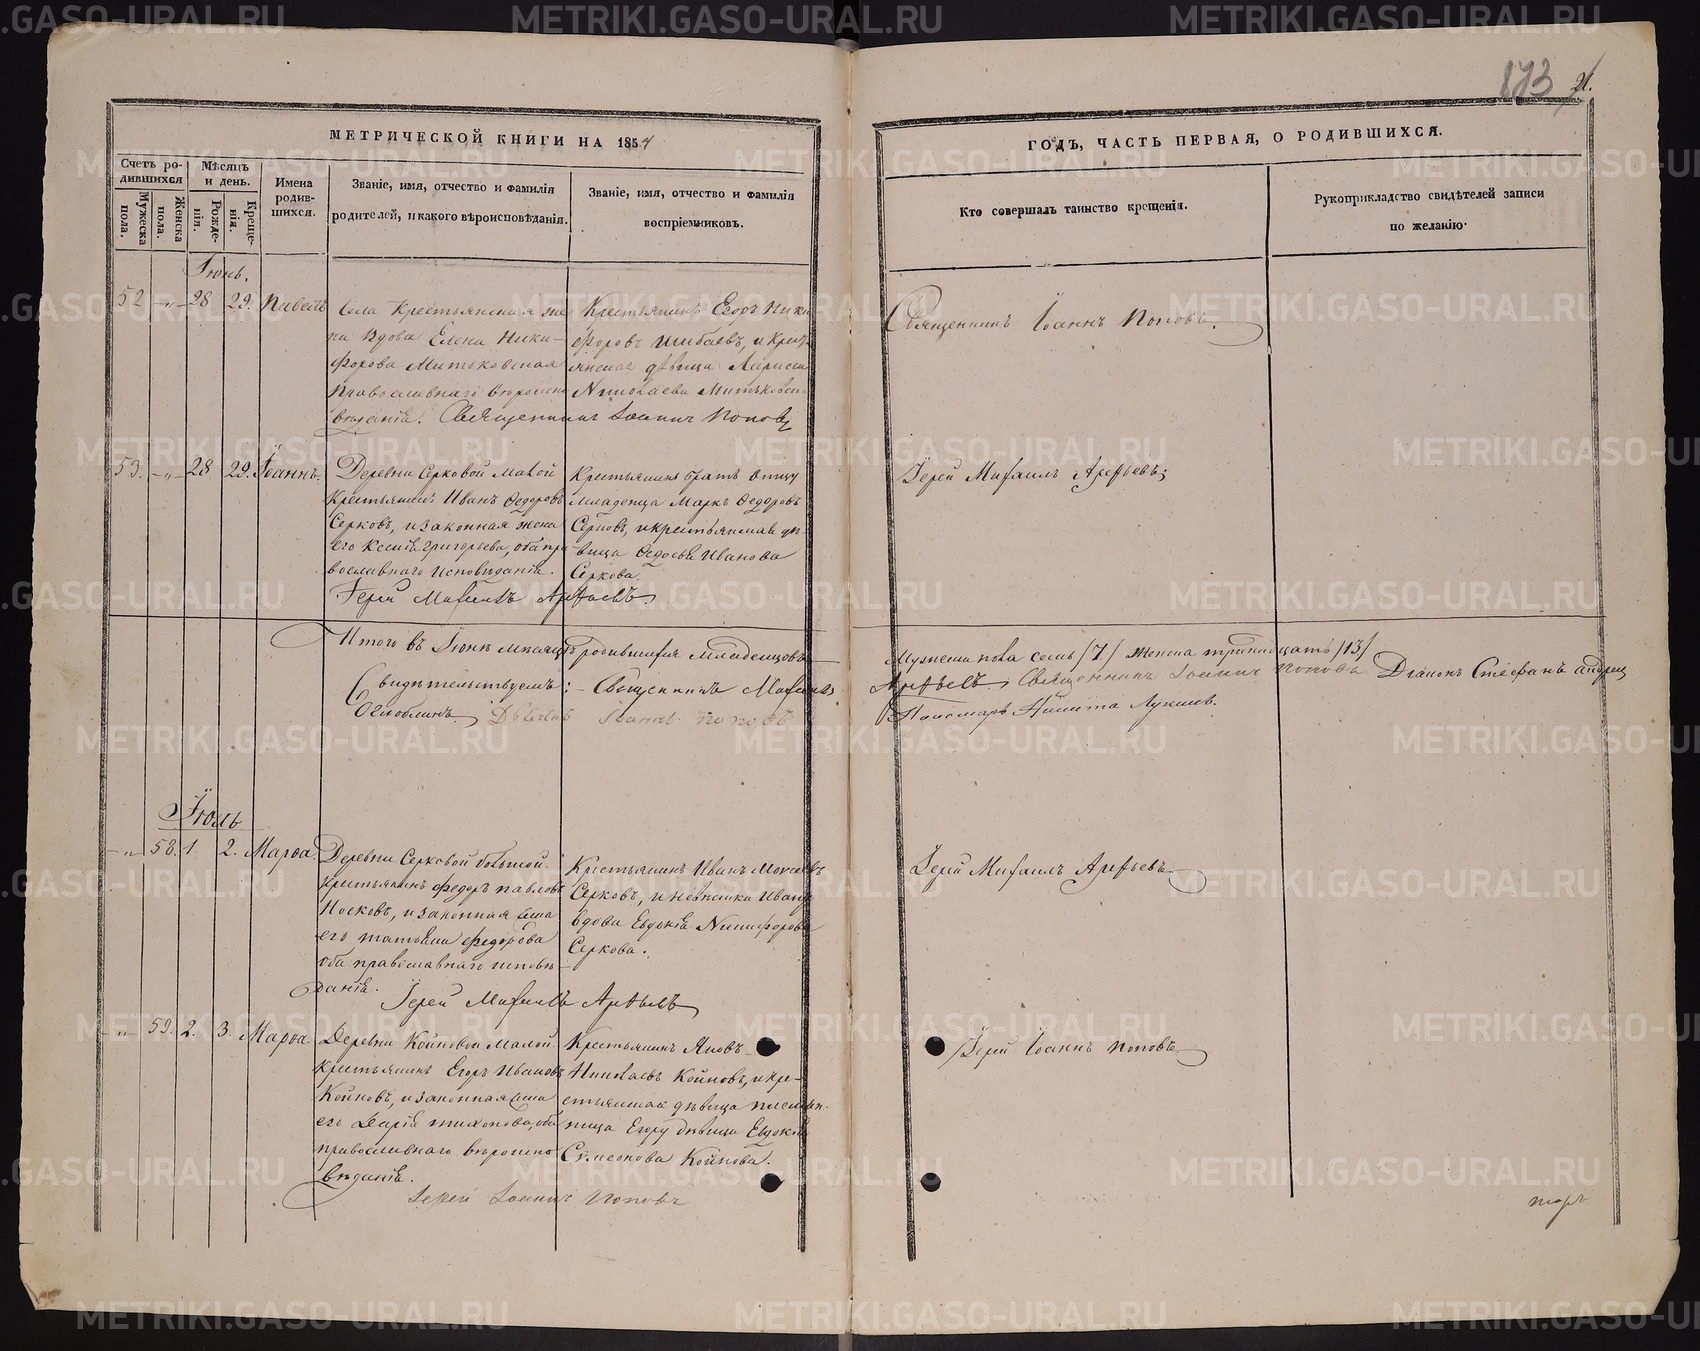 173 21.
МЕТРИЧЕСКОЙ КНИГИ НА 1854
ГОДЪ, ЧАСТЬ ПЕРВАЯ, О РОДИВШИХСЯ.
Счетъ ро-
дившихся
Мужеска пола.
Женска пола.
Мѣсяцъ
и день.
Рожде-
нія.
Креще-
нія.
Имена
родив-
шихся.
Званіе, имя, отчество и фамилія
родителей, и какого вѣроисповѣданія.
Званіе, имя, отчество и фамилія
воспріемниковъ.
Кто совершалъ таинство крещенія.
Рукоприкладство свидѣтелей записи
по желанію.
Іюнь.
52 „ 28 29.
Села Крестьянская же-
на вдова Елена Ники-
форова Митюковская
православнаго вѣроиспо-
вѣданія. Священникъ Іоаннъ Поповъ
Крестьянинъ Егоръ Ники
форовъ Шибаевъ, и крес
янская дѣвица Лариса
Николаева
Священникъ Іоаннъ Поповъ.
53. „ 28 29. Іоаннъ.
Деревни Серковой Малой
Крестьянинъ Иванъ Ѳедоровъ
Серковъ, и законная жена
его Ксенія Григорьева, оба пра
вославнаго исповѣданія.
Іерей Михаилъ Арефьевъ
Крестьянинъ братъ отцу
младенца Маркъ Ѳедоровъ
Серковъ, и крестьянская дѣ-
вица Ѳедосья Иванова
Серкова.
Іерей Михаилъ Арефьевъ
Итого въ Іюнѣ мѣсяцѣ родившихся младенцовъ
Мужеска пола семь /7/ женска тринадцать /13/
Свидѣтельствуемъ: Священникъ Михаилъ
Арефьевъ Священникъ Іоаннъ Поповъ Діаконъ Стефанъ
Поповъ
Пономарь Никита Лукинъ.
Іюль
„ 58. 1. 2. Марѳа
Деревни Серковой большой
крестьянинъ Федоръ Павловъ
Носковъ, и законная жена
его Татьяна Федорова
оба православнаго исповѣ-
данія. Іерей Михаилъ Арефьевъ
Крестьянинъ Иванъ Моисеевъ
Серковъ, и невѣстка Ивану
вдова Евдокія Никифорова
Серкова.
Іерей Михаилъ Арефьевъ
„ 59. 2. 3. Марѳа
Деревни Койновой Малой
крестьянинъ Егоръ Ивановъ
Койновъ, и законная жена
его Дарія Тихонова, оба
православнаго вѣроиспо
вѣданія.
Іерей Іоаннъ Поповъ
Крестьянинъ Яковъ
Николаевъ Койновъ, и кре-
стьянская дѣвица племян-
ница Егору дѣвица Евдокія
Симеонова Койнова.
Іерей Іоаннъ Поповъ
METRIKI.GASO-URAL.RU